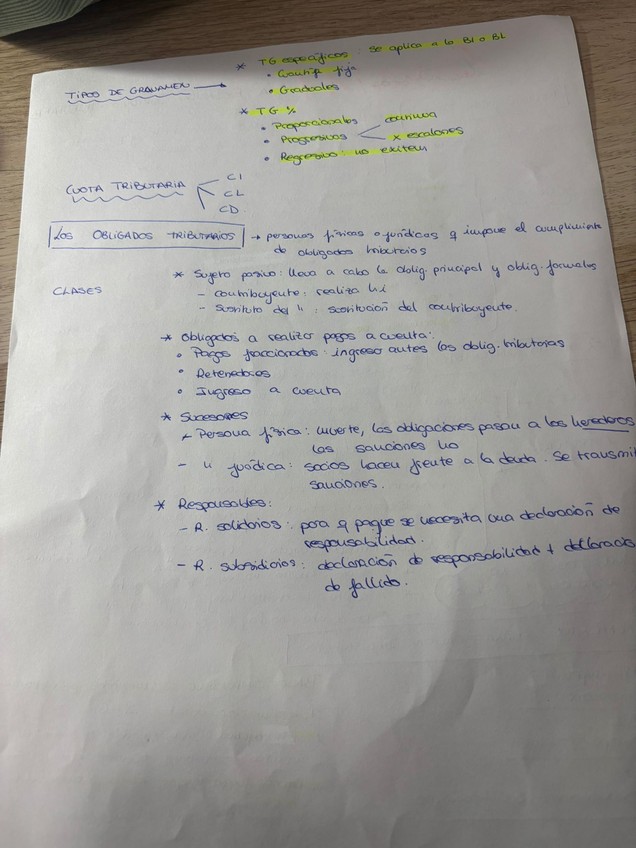 * TG específicos: se aplica a la BI o BL
TIPOS DE GRAVAMEN →
• Cuantía fija
• Graduales
* TG %
• Proporcionales
• Progresivos < continua
x escalones
• Regresivo: no existen
CUOTA TRIBUTARIA
CI
CL
CD
LOS OBLIGADOS TRIBUTARIOS → personas físicas o jurídicas q impone el cumplimiento
de obligados tributarios
CLASES
* Sujeto pasivo: lleva a cabo la oblig. principal y oblig. formales
- contribuyente: realiza h.i
- Sustituto del ": sustitución del contribuyente.
* Obligados a realizar pagos a cuenta:
• Pagos fraccionados: ingreso antes las oblig. tributarias
• Retenedores
• Ingreso a cuenta
* Sucesores
- Persona física: muerte, las obligaciones pasan a los herederos
las sanciones no
- " jurídica: socios hacen frente a la deuda. Se transmi
sanciones.
* Responsables:
- R. solidarios: para q pague se necesita una declaración de
responsabilidad.
- R. subsidiarios: declaración de responsabilidad + declaració
de fallido.